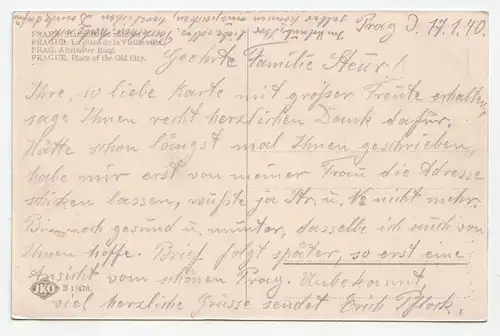 Prag D. 17.1.40.
PRAHA.
PRAGUE. La place de la Vieille ville.
PRAG. Altstädter Ring.
PRAGUE. Place of the Old City.
Geehrte Familie Steur!
Ihre, so liebe Karte mit großer Freute erhalten,
sage Ihnen recht herzlichen Dank dafür.
Hätte schon längst mal Ihnen geschrieben,
habe mir erst von meiner Frau die Adresse
schicken lassen, wußte ja Str. u. No nicht mehr.
Bin noch gesund u. munter, dasselbe ich auch von
Ihnen hoffe. Brief folgt später, so erst eine
Ansicht vom schönen Prag. Unbekannt,
viel herzliche Grüsse sendet Erich
JKO B 1/476.